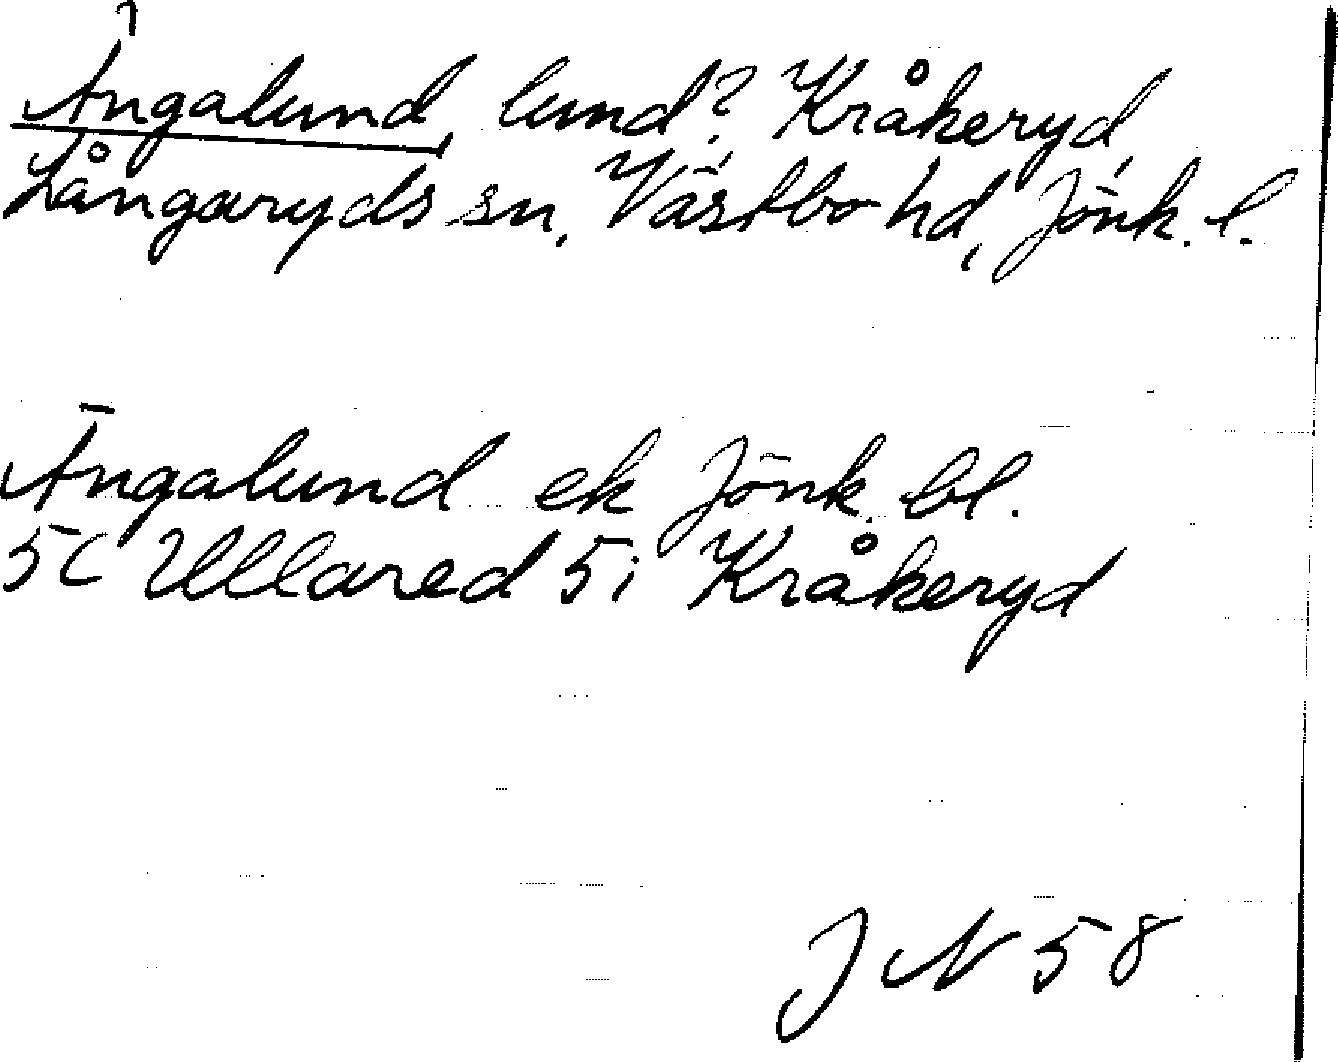 Ängalund, lund? Kråkeryd
Långaryds sn, Västbo hd, Jönk. l.
Ängalund ek Jönk. bl.
5C Ullared 5i Kråkeryd
JN 58